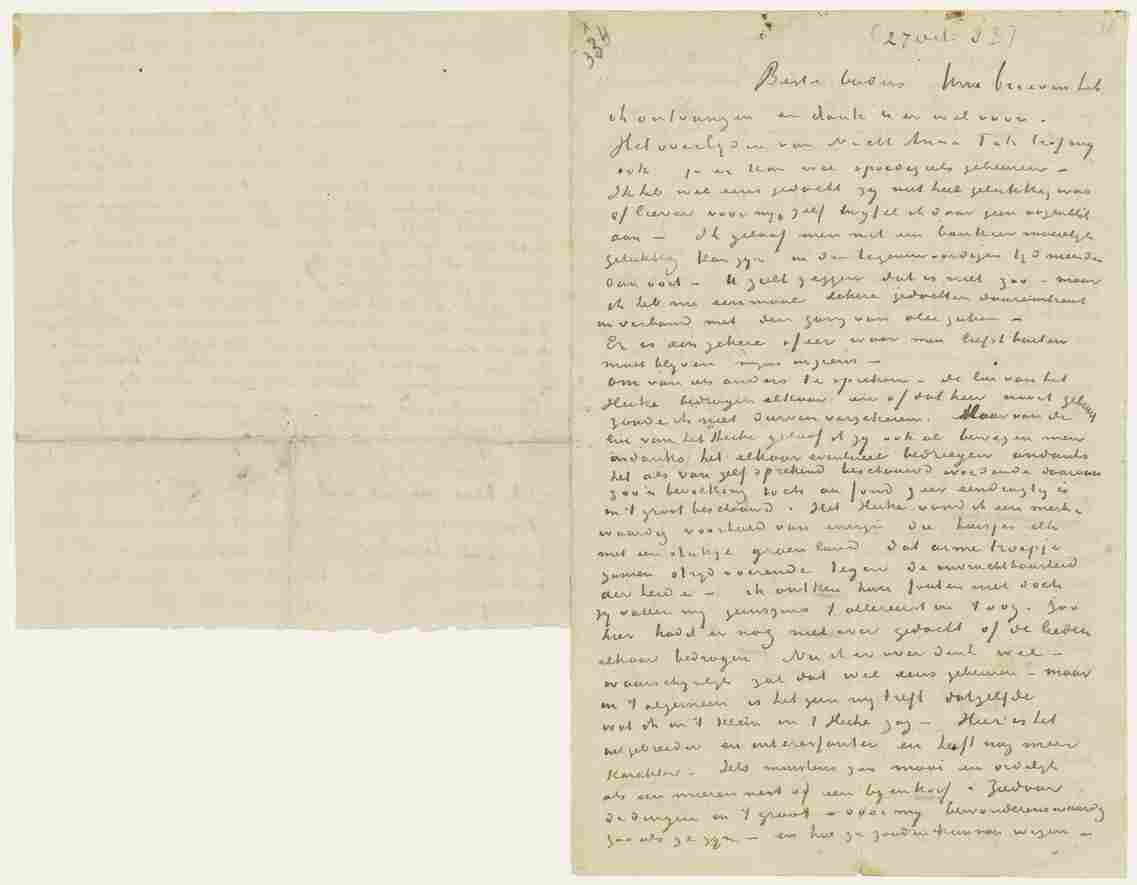 334
(27 oct. 83)
Beste broer Uwe brieven heb
ik ontvangen en dank u er wel voor.
Het overlyden van Nicht Anna
ook ja er kan veel spoedig iets gebeuren –
Ik heb wel eens gedacht zy niet heel gelukkig was
of liever voor my zelf twyfel ik daar geen oogenblik
aan – Ik geloof men met een bankier moeielyk
gelukkig kan zyn in den tegenwoordigen tyd minder
dan ooit – U zult zeggen dat is niet zoo – maar
ik heb nu eenmaal zekere gedachten daaromtrent
in verband met den gang van alle zaken –
Er is een zekere sfeer waar men liefst buiten
moet blyven myns inziens –
Om van iets anders te spreken – de lui van het
Heike bedriegen elkaar en of dat hier nooit gebeurt
zoude ik niet durven verzekeren. Maar van de
lui van het Heike geloof ik zy ook al bewyzen men
ondanks het elkaar eventueel bedriegen ondanks
het als van zelf sprekend beschouwd wordende daarvan
zoo'n bevolking toch au fond zeer eendragtig is
in 't groot beschouwd. Het Heike vond ik een merk-
waardig voorbeeld van energie die huisjes elk
met een stukje groen land dat arme troepje
zamen stryd voerende tegen de onvruchtbaarheid
der heide – ik ontken hun fouten niet doch
zy vallen my geenszins 't allereerst in 't oog. Zoo
hier had ik er nog niet over gedacht of de lieden
elkaar bedrogen Nu ik er over denk wel –
waarschynlyk zal dat wel eens gebeuren – maar
in 't algemeen is hetgeen my treft datzelfde
wat ik in 't klein in 't Heike zag – Hier is het
uitgebreider en interessanter en heeft nog meer
karakter. Iets minstens zoo mooi en ordelyk
als een mierennest of een byenkorf. Ziedaar
de dingen in 't groot – voor my bewonderenswaardig
zoo als ze zyn – en hoe ze zouden kunnen wezen –